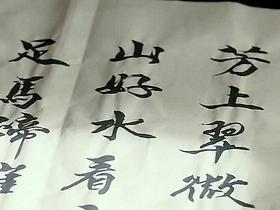 芳上翠微
山好水看
足馬蹄